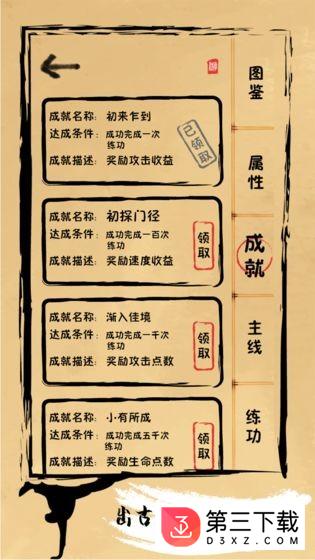 成就名称: 初来乍到
达成条件: 成功完成一次
练功
成就描述: 奖励攻击收益
已领取
成就名称: 初探门径
达成条件: 成功完成一百次
练功
成就描述: 奖励速度收益
领取
成就名称: 渐入佳境
达成条件: 成功完成一千次
练功
成就描述: 奖励攻击点数
领取
成就名称: 小有所成
达成条件: 成功完成五千次
练功
成就描述: 奖励生命点数
领取
图鉴
属性
成就
主线
练功
出古
第三下载
D3XZ.COM